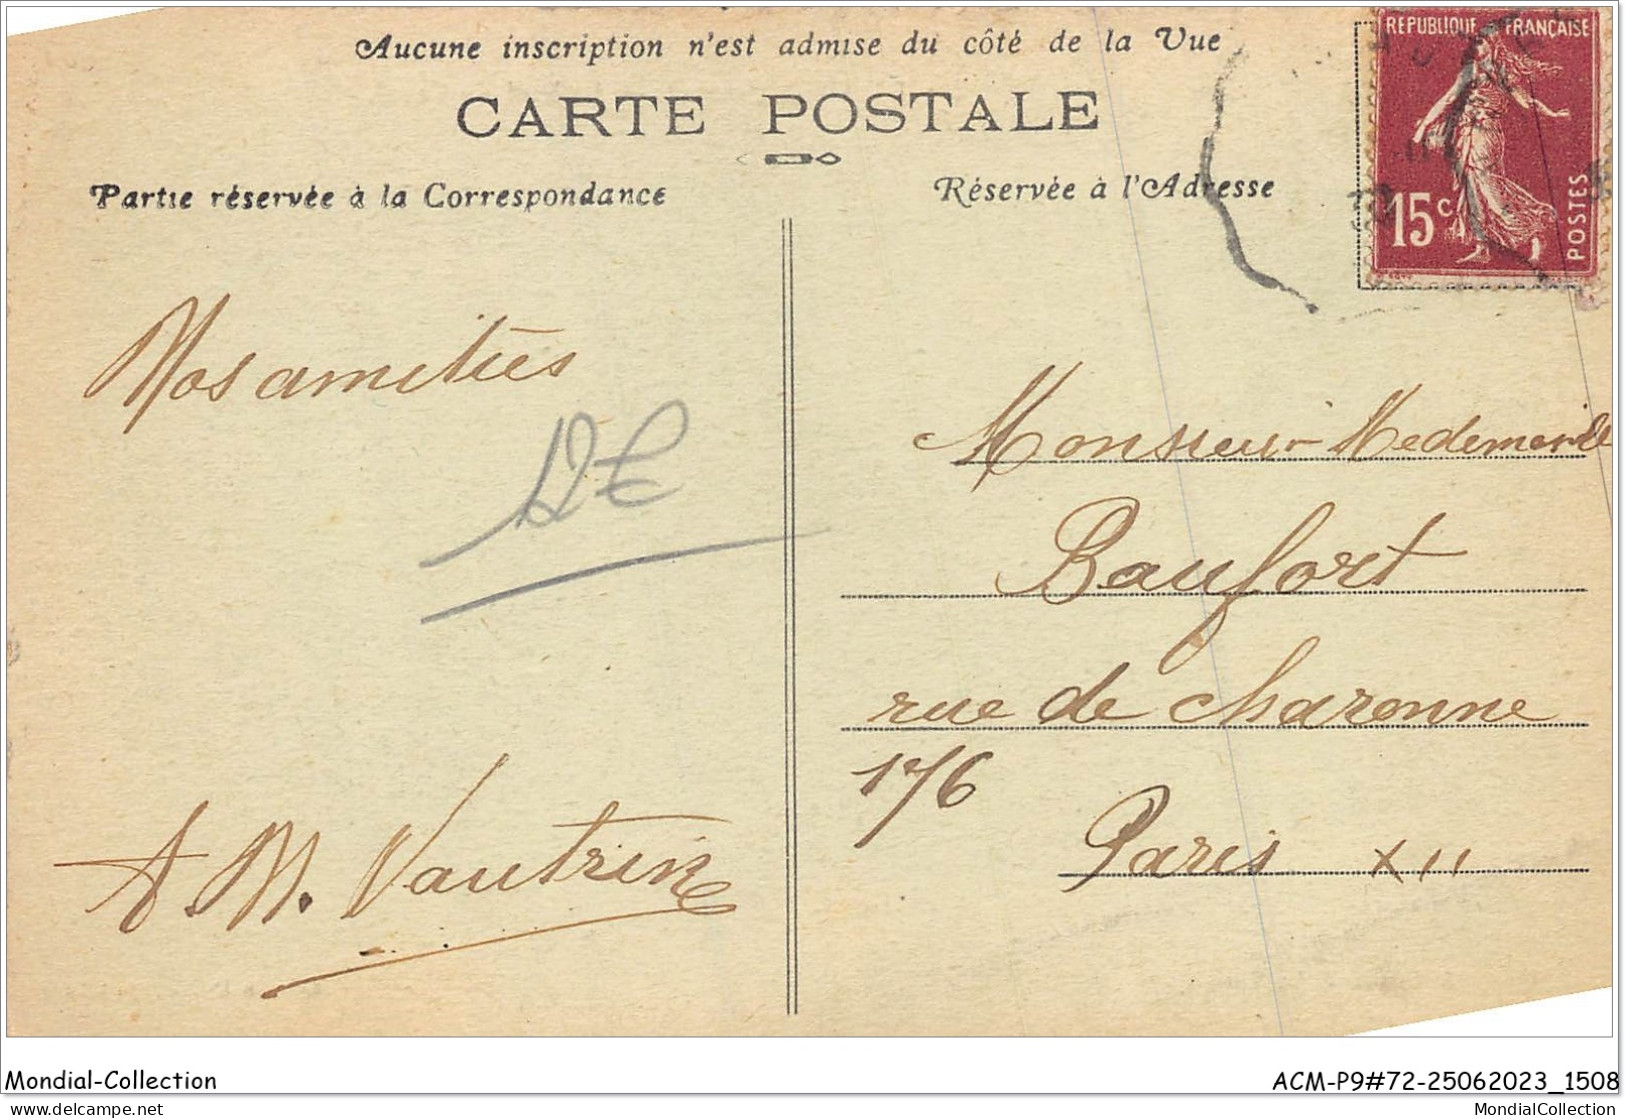 Aucune inscription n'est admise du côté de la Vue
CARTE POSTALE
Partie réservée à la Correspondance
Réservée à l'Adresse
REPUBLIQUE FRANÇAISE
15c
POSTES
Nos amitiés
A. M. Vautrin
Monsieur
Baufort
rue de charonne
176
Paris XII
Mondial-Collection
ACM-P9#72-25062023_1508
delcampe.net
MondialCollection